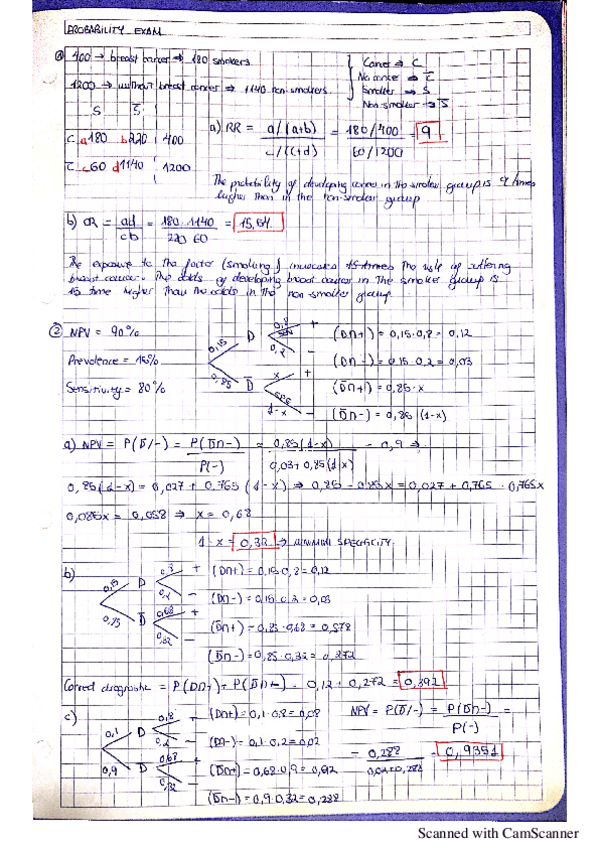 PROBABILITY EXAM
① 400 → breast cancer ⇒ 180 smokers
1200 → without breast cancer ⇒ 1140 non-smokers
Cancer → C
No cancer → C̅
Smoker → S
Non-smoker → S̅
S S̅
C a180 b220 400
C̅ c60 d1140 1200
a) RR = a/(a+b) / c/(c+d) = 180/400 / 60/1200 = 9
The probability of developing cancer in the smoker group is 9 times
higher than in the non-smoker group
b) OR = ad/cb = 180·1140 / 220·60 = 15,64
The exposure to the factor (smoking) increases 15 times the risk of suffering
breast cancer. The odds of developing breast cancer in the smoker group is
15 time higher than the odds in the non-smoker group.
② NPV = 90%
Prevalence = 15%
Sensitivity = 80%
0,15 D 0,8 + (D∩+) = 0,15·0,8 = 0,12
0,2 - (D∩-) = 0,15·0,2 = 0,03
0,85 D̅ x + (D̅∩+) = 0,85·x
1-x - (D̅∩-) = 0,85(1-x)
a) NPV = P(D̅/-) = P(D̅∩-) / P(-) = 0,85(1-x) / 0,03+0,85(1-x) = 0,9 ⇒
0,85(1-x) = 0,027 + 0,765(1-x) ⇒ 0,85-0,85x = 0,027+0,765-0,765x
0,085x = 0,058 ⇒ x = 0,68
1-x = 0,32 → MINIMUM SPECIFICITY.
b)
0,15 D 0,8 + (D∩+) = 0,15·0,8 = 0,12
0,2 - (D∩-) = 0,15·0,2 = 0,03
D̅ 0,68 + (D̅∩+) = 0,85·0,68 = 0,578
0,32 - (D̅∩-) = 0,85·0,32 = 0,272
Correct diagnostic = P(D∩+)+P(D̅∩-) = 0,12+0,272 = 0,392
c)
0,1 D 0,8 + (D∩+) = 0,1·0,8 = 0,08
0,2 - (D∩-) = 0,1·0,2 = 0,02
0,9 D̅ 0,68 + (D̅∩+) = 0,68·0,9 = 0,612
0,32 - (D̅∩-) = 0,9·0,32 = 0,288
NPV = P(D̅/-) = P(D̅∩-) / P(-) =
= 0,288 / 0,02+0,288 = 0,9351
Scanned with CamScanner